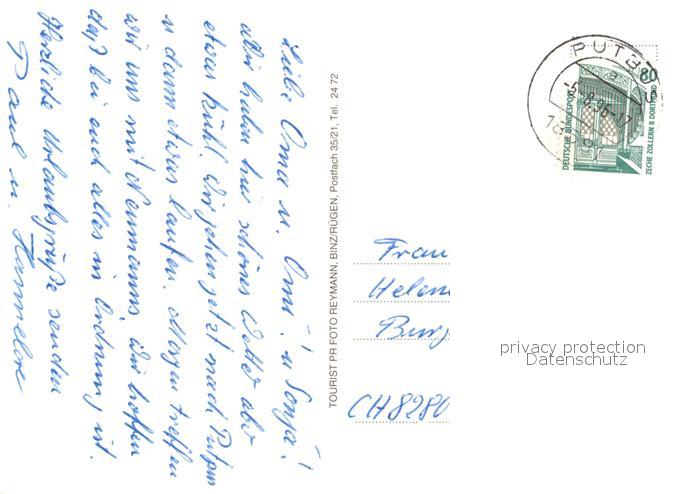 Liebe Oma u. Omi! u Sonja!
Wir haben hier schönes Wetter aber
etwas kühl. Wir gehen jetzt nach Putbus
u dann etwas laufen. Morgen treffen
wir uns mit Neumanns. Wir hoffen
daß bei euch alles in Ordnung ist.
Herzliche Urlaubsgrüße senden
Paul u. Hannelore
TOURIST PR FOTO REYMANN, BINZ/RÜGEN, Postfach 35/21, Tel. 24 72
PUTB
-5.8.96-17
80
DEUTSCHE BUNDESPOST
ZECHE ZOLLERN II DORTMUND
Frau
Helen
Burg
CH 8280
privacy protection
Datenschutz